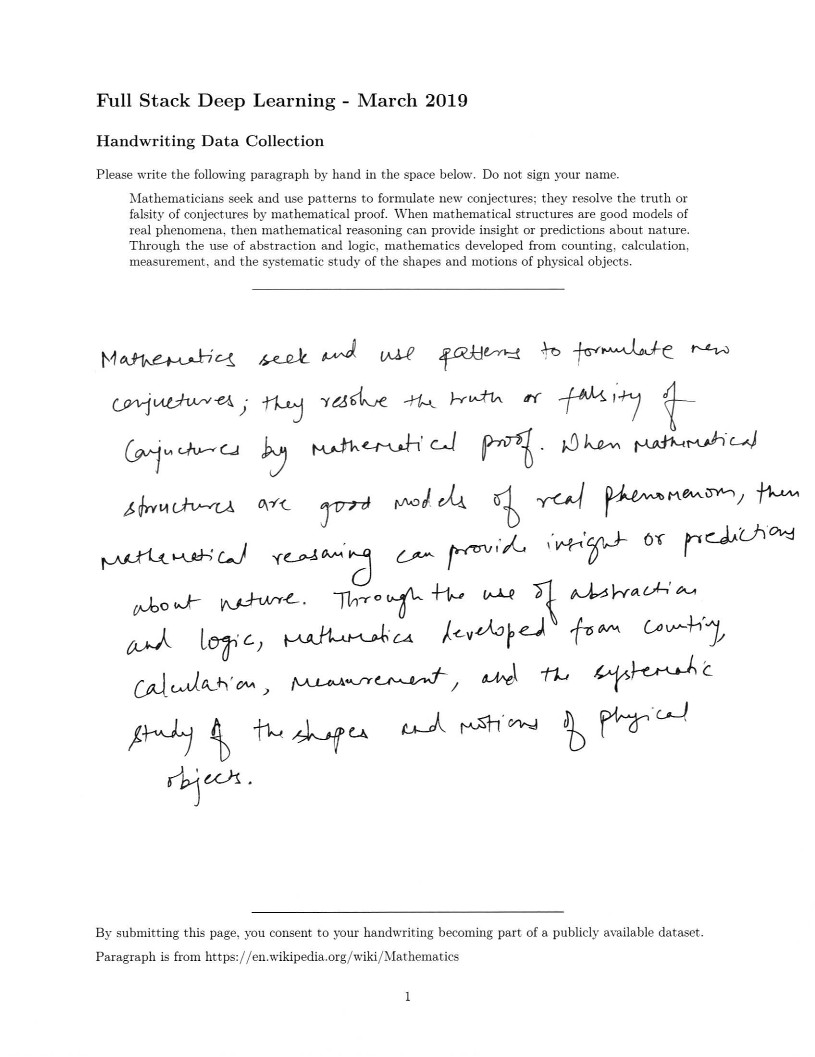 Full Stack Deep Learning - March 2019
Handwriting Data Collection
Please write the following paragraph by hand in the space below. Do not sign your name.
Mathematicians seek and use patterns to formulate new conjectures; they resolve the truth or
falsity of conjectures by mathematical proof. When mathematical structures are good models of
real phenomena, then mathematical reasoning can provide insight or predictions about nature.
Through the use of abstraction and logic, mathematics developed from counting, calculation,
measurement, and the systematic study of the shapes and motions of physical objects.
Mathematics seek and use patterns to formulate new
conjuctures; they resolve the truth or falsity of
Conjuctures by mathematical proof. When mathematical
structures are good models of real phenomenom, then
mathematical reasoning can provide insight or predictions
about nature. Through the use of abstraction
and logic, mathematics developed from counting,
Calculation, measurement, and the systematic
study of the shapes and motions of physical
objects.
By submitting this page, you consent to your handwriting becoming part of a publicly available dataset.
Paragraph is from https://en.wikipedia.org/wiki/Mathematics
1